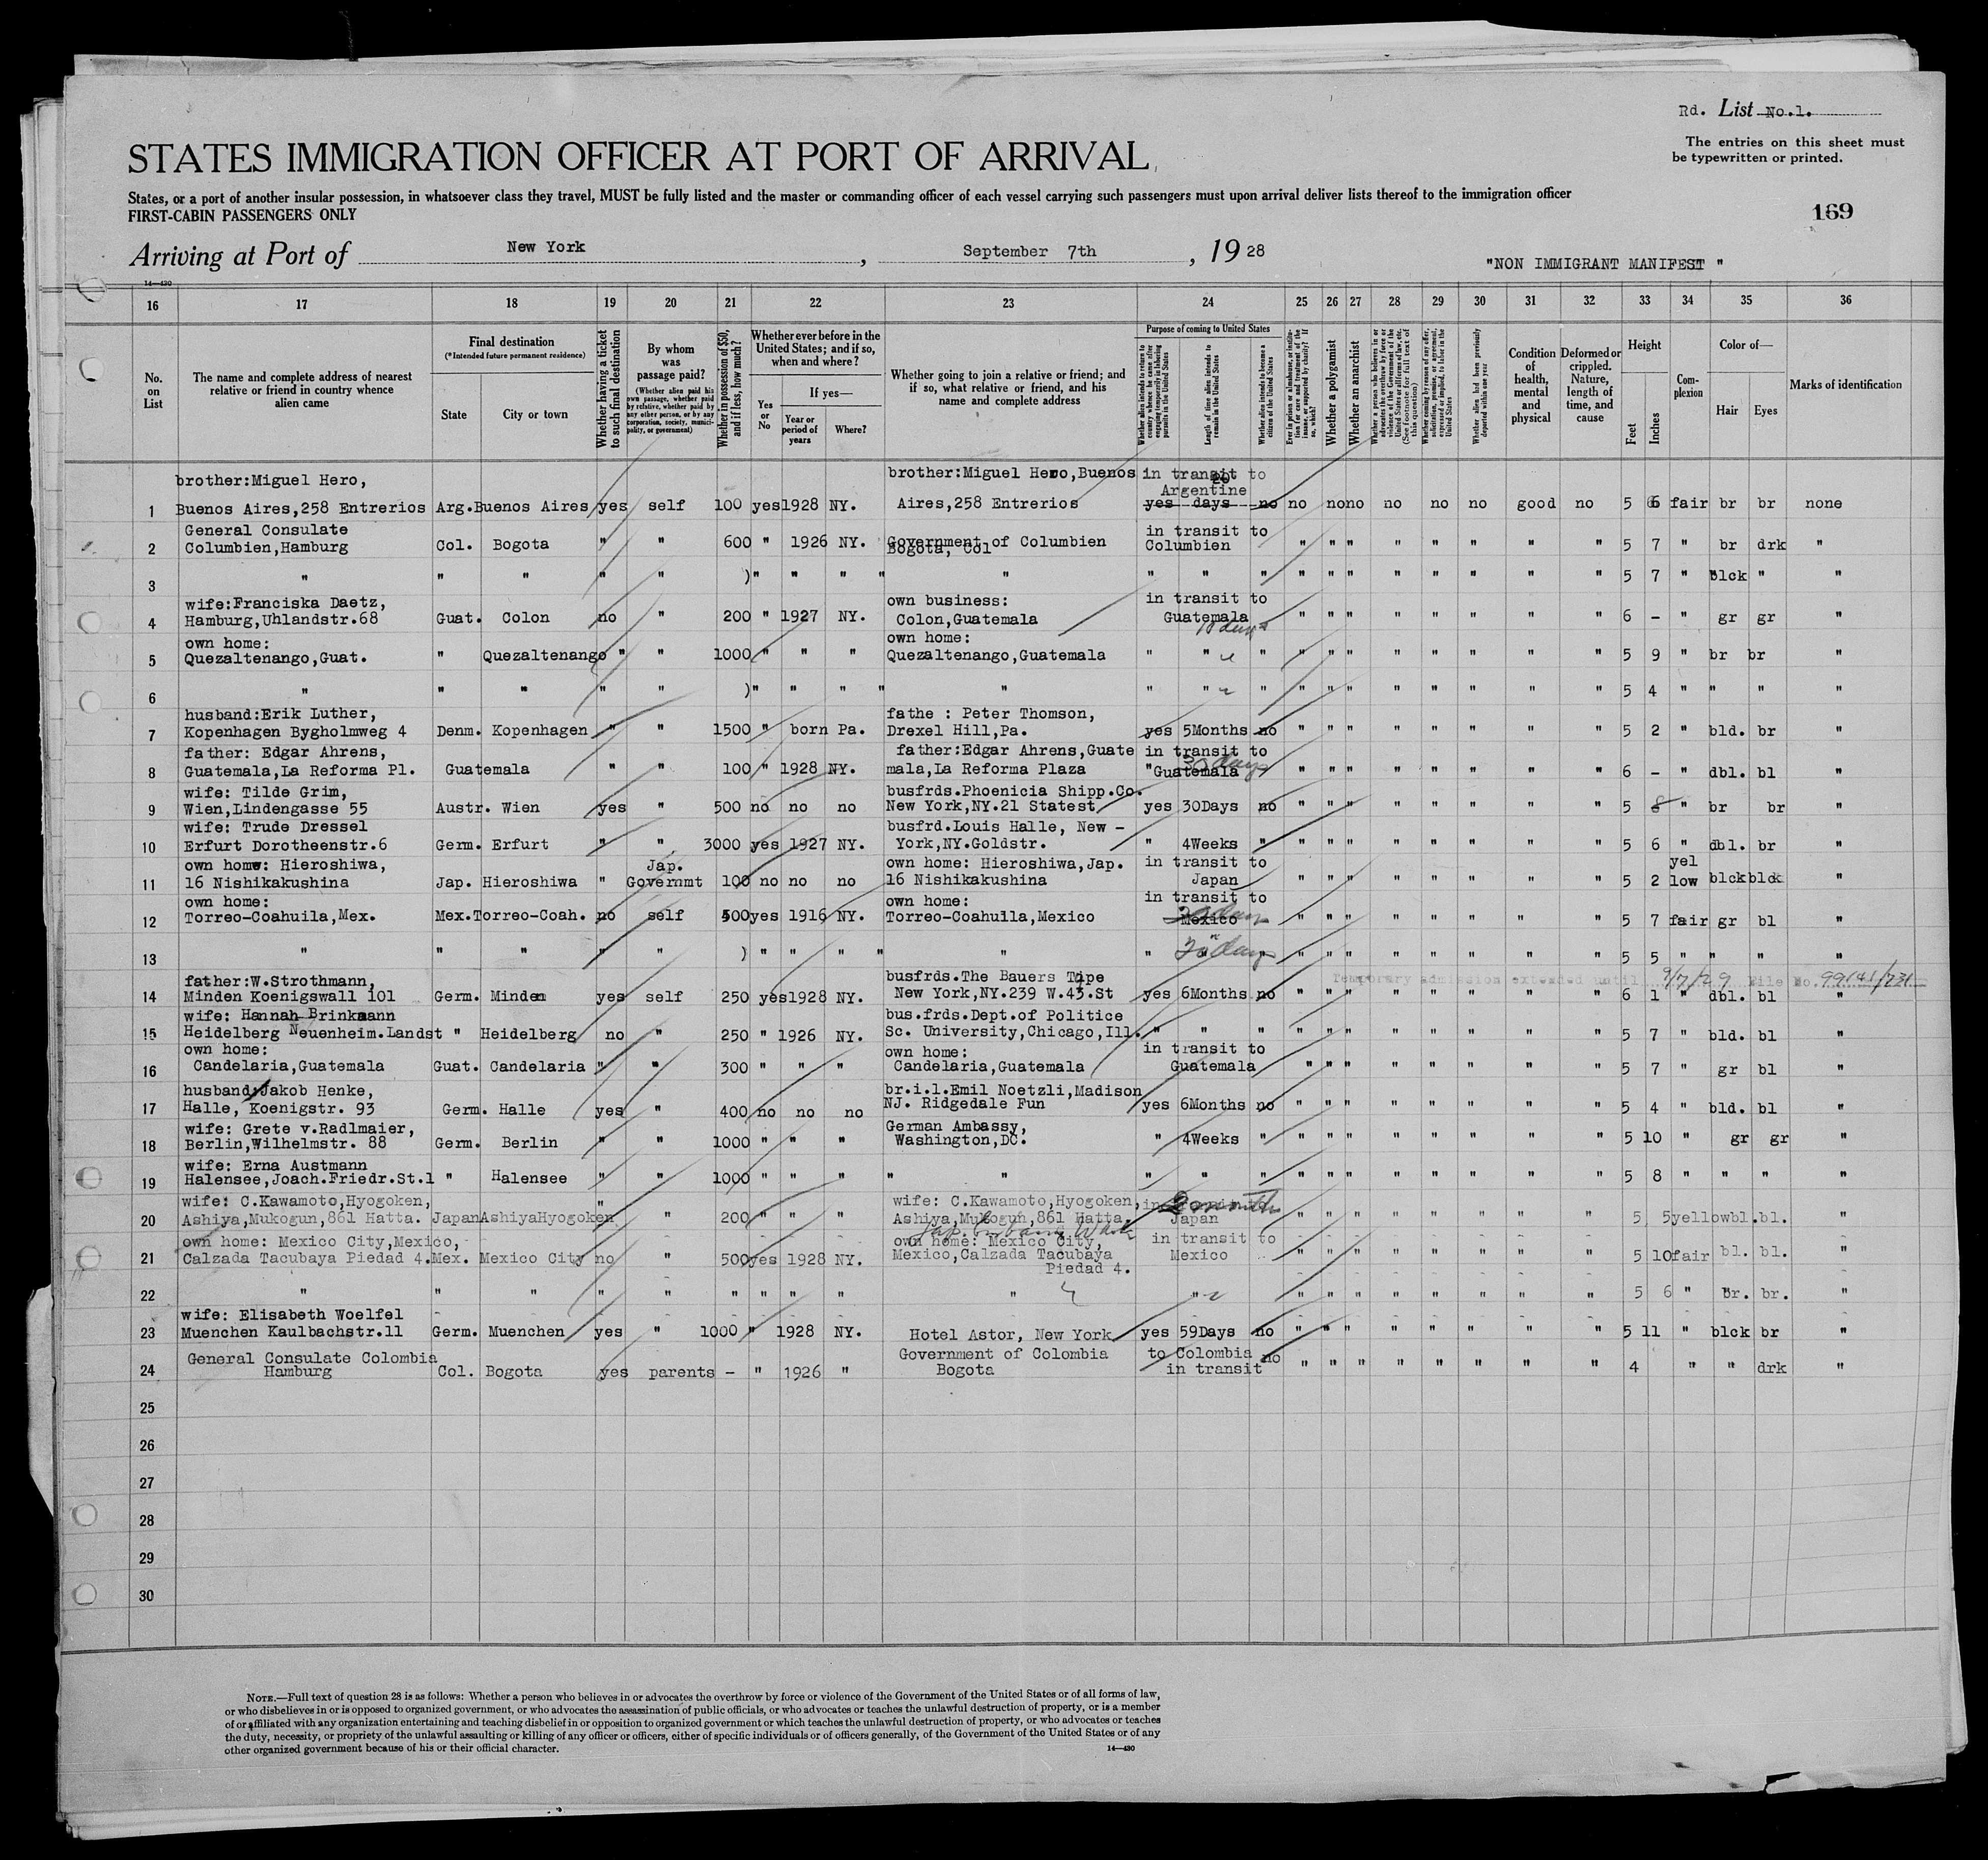 Rd. List No.1.
The entries on this sheet must
be typewritten or printed.
STATES IMMIGRATION OFFICER AT PORT OF ARRIVAL
States, or a port of another insular possession, in whatsoever class they travel, MUST be fully listed and the master or commanding officer of each vessel carrying such passengers must upon arrival deliver lists thereof to the immigration officer
FIRST-CABIN PASSENGERS ONLY
169
Arriving at Port of New York , September 7th , 19 28
"NON IMMIGRANT MANIFEST "
14—430
16 17 18 19 20 21 22 23 24 25 26 27 28 29 30 31 32 33 34 35 36
No. on List
The name and complete address of nearest relative or friend in country whence alien came
Final destination
(*Intended future permanent residence)
State
City or town
Whether having a ticket to such final destination
By whom was passage paid?
(Whether alien paid his own passage, whether paid by relative, whether paid by any other person, or by any corporation, society, municipality, or government)
Whether in possession of $50, and if less, how much?
Whether ever before in the United States; and if so, when and where?
Yes or No
If yes—
Year or period of years
Where?
Whether going to join a relative or friend; and if so, what relative or friend, and his name and complete address
Purpose of coming to United States
Whether alien intends to return to country whence he came after engaging temporarily in laboring pursuits in the United States
Length of time alien intends to remain in the United States
Whether alien intends to become a citizen of the United States
Ever in prison or almshouse or institution for care and treatment of the insane, or supported by charity? If so, which?
Whether a polygamist
Whether an anarchist
Whether a person who believes in or advocates the overthrow by force or violence of the Government of the United States or all forms of law, etc. (See footnote for full text of this question)
Whether coming by reason of any offer, solicitation, promise, or agreement, expressed or implied, to labor in the United States
Whether alien had been previously deported within one year
Condition of health, mental and physical
Deformed or crippled. Nature, length of time, and cause
Height
Feet
Inches
Complexion
Color of—
Hair
Eyes
Marks of identification
brother:Miguel Hero, brother:Miguel Hero,Buenos in transit to
Argentine
1 Buenos Aires,258 Entrerios Arg. Buenos Aires yes self 100 yes 1928 NY. Aires,258 Entrerios yes days no no no no no no no good no 5 6 fair br br none
General Consulate in transit to
2 Columbien,Hamburg Col. Bogota " " 600 " 1926 NY. Government of Columbien Columbien " " " " " " " " 5 7 " br drk "
Bogota, Col
3 " " " " " ) " " " " " " " " " " " " " " " " 5 7 " blck " "
wife:Franciska Daetz, own business: in transit to
4 Hamburg,Uhlandstr.68 Guat. Colon no " 200 " 1927 NY. Colon,Guatemala Guatemala " " " " " " " " 6 – " gr gr "
10 days
own home: own home:
5 Quezaltenango,Guat. " Quezaltenango " " 1000 " " " Quezaltenango,Guatemala " " " " " " " " " " " 5 9 " br br "
6 " " " " " ) " " " " " " " " " " " " " " " " 5 4 " " " "
husband:Erik Luther, fathe : Peter Thomson,
7 Kopenhagen Bygholmweg 4 Denm. Kopenhagen " " 1500 " born Pa. Drexel Hill,Pa. yes 5Months no " " " " " " " " 5 2 " bld. br "
father: Edgar Ahrens, father:Edgar Ahrens,Guate in transit to
8 Guatemala,La Reforma Pl. Guatemala " " 100 " 1928 NY. mala,La Reforma Plaza " Guatemala " " " " " " " " 6 – " dbl. bl "
30 days
wife: Tilde Grim, busfrds.Phoenicia Shipp.Co.
9 Wien,Lindengasse 55 Austr. Wien yes " 500 no no no New York,NY.21 Statest yes 30Days no " " " " " " " " 5 8 " br br "
wife: Trude Dressel busfrd.Louis Halle, New -
10 Erfurt Dorotheenstr.6 Germ. Erfurt " " 3000 yes 1927 NY. York,NY.Goldstr. " 4Weeks " " " " " " " " " 5 6 " dbl. br "
own home: Hieroshiwa, Jap. own home: Hieroshiwa,Jap. in transit to yel
11 16 Nishikakushina Jap. Hieroshiwa " Governmt 100 no no no 16 Nishikakushina Japan " " " " " " " " 5 2 low blck blck "
own home: own home: in transit to
12 Torreo-Coahuila,Mex. Mex. Torreo-Coah. no self 500 yes 1916 NY. Torreo-Coahuila,Mexico Mexico " " " " " " " " 5 7 fair gr bl "
13 " " " " " ) " " " " " " 20 days " " " " " " " " 5 5 " " " "
Temporary admission extended until 9/7/29 File No. 99141/731
father:W.Strothmann, busfrds.The Bauers Type
14 Minden Koenigswall 101 Germ. Minden yes self 250 yes 1928 NY. New York,NY.239 W.43.St yes 6Months no " " " " " " " " 6 1 " dbl. bl "
wife: Hannah Brinkmann bus.frds.Dept.of Politice
15 Heidelberg Neuenheim.Landst " Heidelberg no " 250 " 1926 NY. Sc. University,Chicago,Ill. " " " " " " " " " " " 5 7 " bld. bl "
own home: own home: in transit to
16 Candelaria,Guatemala Guat. Candelaria " " 300 " " " Candelaria,Guatemala Guatemala " " " " " " " " 5 7 " gr bl "
husband:Jakob Henke, br.i.l.Emil Noetzli,Madison
17 Halle, Koenigstr. 93 Germ. Halle yes " 400 no no no NJ. Ridgedale Fun yes 6Months no " " " " " " " " 5 4 " bld. bl "
wife: Grete v.Radlmaier, German Ambassy,
18 Berlin,Wilhelmstr. 88 Germ. Berlin " " 1000 " " " Washington,DC. " 4Weeks " " " " " " " " " 5 10 " gr gr "
wife: Erna Austmann
19 Halensee,Joach.Friedr.St.1 " Halensee " " 1000 " " " " " " " " " " " " " " " " 5 8 " " " "
wife: C.Kawamoto,Hyogoken, wife: C.Kawamoto,Hyogoken, in transit to
20 Ashiya,Mukogun,861 Hatta. Japan AshiyaHyogoken " " 200 " " " Ashiya,Mukogun,861 Hatta. Japan " " " " " " " " 5 5 yellow bl. bl. "
own home: Mexico City,Mexico, own home: Mexico City, in transit to
21 Calzada Tacubaya Piedad 4. Mex. Mexico City no " 500 yes 1928 NY. Mexico,Calzada Tacubaya Mexico " " " " " " " " 5 10 fair bl. bl. "
Piedad 4.
22 " " " " " " " " " " " " " " " " " " " " 5 6 " br. br. "
wife: Elisabeth Woelfel
23 Muenchen Kaulbachstr.11 Germ. Muenchen yes " 1000 " 1928 NY. Hotel Astor, New York yes 59Days no " " " " " " " " 5 11 " blck br "
General Consulate Colombia Government of Colombia to Colombia no
24 Hamburg Col. Bogota yes parents – " 1926 " Bogota in transit " " " " " " " " 4 " " drk "
25
26
27
28
29
30
NOTE.—Full text of question 28 is as follows: Whether a person who believes in or advocates the overthrow by force or violence of the Government of the United States or of all forms of law,
or who disbelieves in or is opposed to organized government, or who advocates the assassination of public officials, or who advocates or teaches the unlawful destruction of property, or is a member
of or affiliated with any organization entertaining and teaching disbelief in or opposition to organized government or which teaches the unlawful destruction of property, or who advocates or teaches
the duty, necessity, or propriety of the unlawful assaulting or killing of any officer or officers, either of specific individuals or of officers generally, of the Government of the United States or of any
other organized government because of his or their official character.
14—430